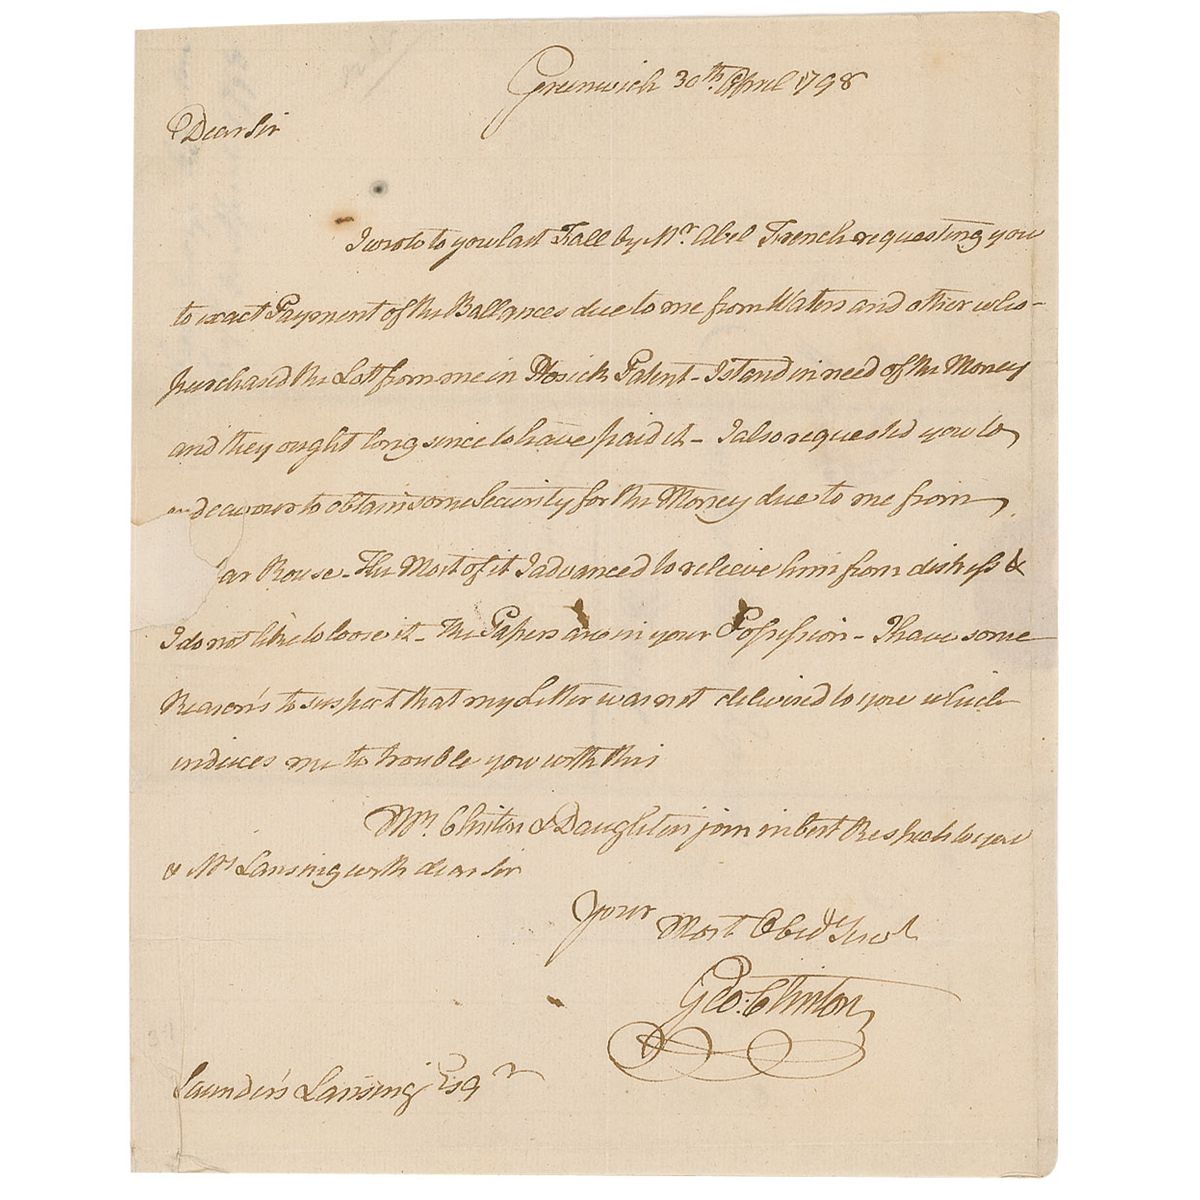 Greenwich 30th. April 1798
Dear Sir
I wrote to you last Fall by Mr. Abel French requesting you
to exact Payment of the Ballances due to me from Waters and other who
purchased the Lott from me in Hosick Patent – I stand in need of the Money
and they ought long since to have paid it – I also requested you to
endeavour to obtain some Security for the Money due to me from
Rouse – The Most of it I advanced to relieve him from distress &
I do not like to loose it – The Papers are in your Possession – I have some
Reasons to suspect that my Letter was not delivered to you which
induces me to trouble you with this
Mrs. Clinton & Daughters join in best Respects to you
& Mrs Lansing with dear Sir
Your
Most Obedt Servt
Geo: Clinton
Saunders Lansing Esqr